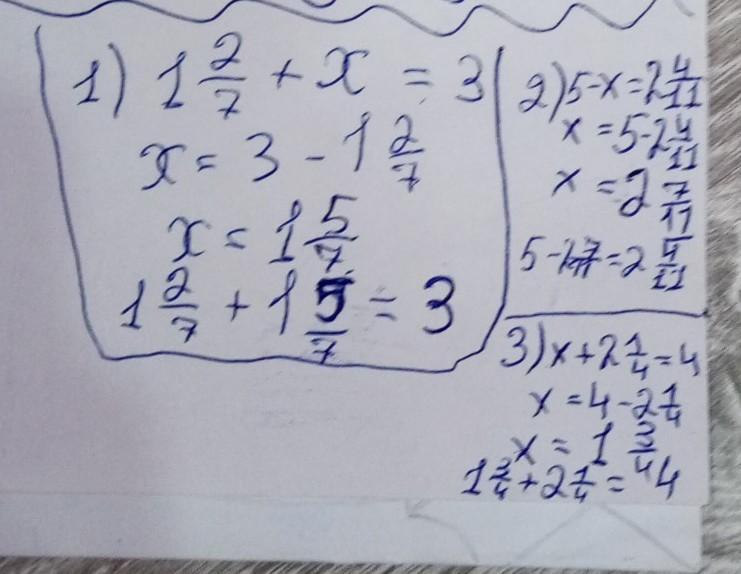 1) 1 2/7 + x = 3
x = 3 - 1 2/7
x = 1 5/7
1 2/7 + 1 5/7 = 3
2) 5-x=2 4/11
x = 5-2 4/11
x = 2 7/11
5- =2 4/11
3) x+2 1/4=4
x = 4-2 1/4
x = 1 3/4
1 3/4+2 1/4=4